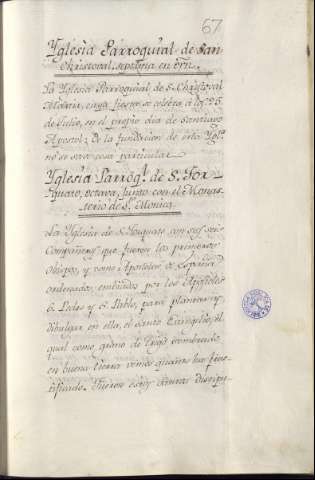 67
Yglesia Parroquial de San
Christoval, septima en orn.
La Yglesia Parroquial de S. Christoval
Martir, cuya fiesta se celebra á los 25
de Julio, en el propio dia de Santiago
Apostol; de la fundacion de esta Ygla
no se save cosa particular
Yglesia Parroql. de S. Tor-
quato, octava, junto con el Monas-
terio de Sta. Monica
La Yglesia de S. Torquato con sus seis
Compañeros que fueron los primeros
obispos, y como Apostoles de España
ordenados, embiados por los Apostoles
S. Pedro y S. Pablo, para plantar y
dibulgar en ella, el Santo Evangelio, el
qual como grano de trigo sembrado
en buena tierra vemos quanto ha fruc-
tificado. Fueron estos Santos discipu-